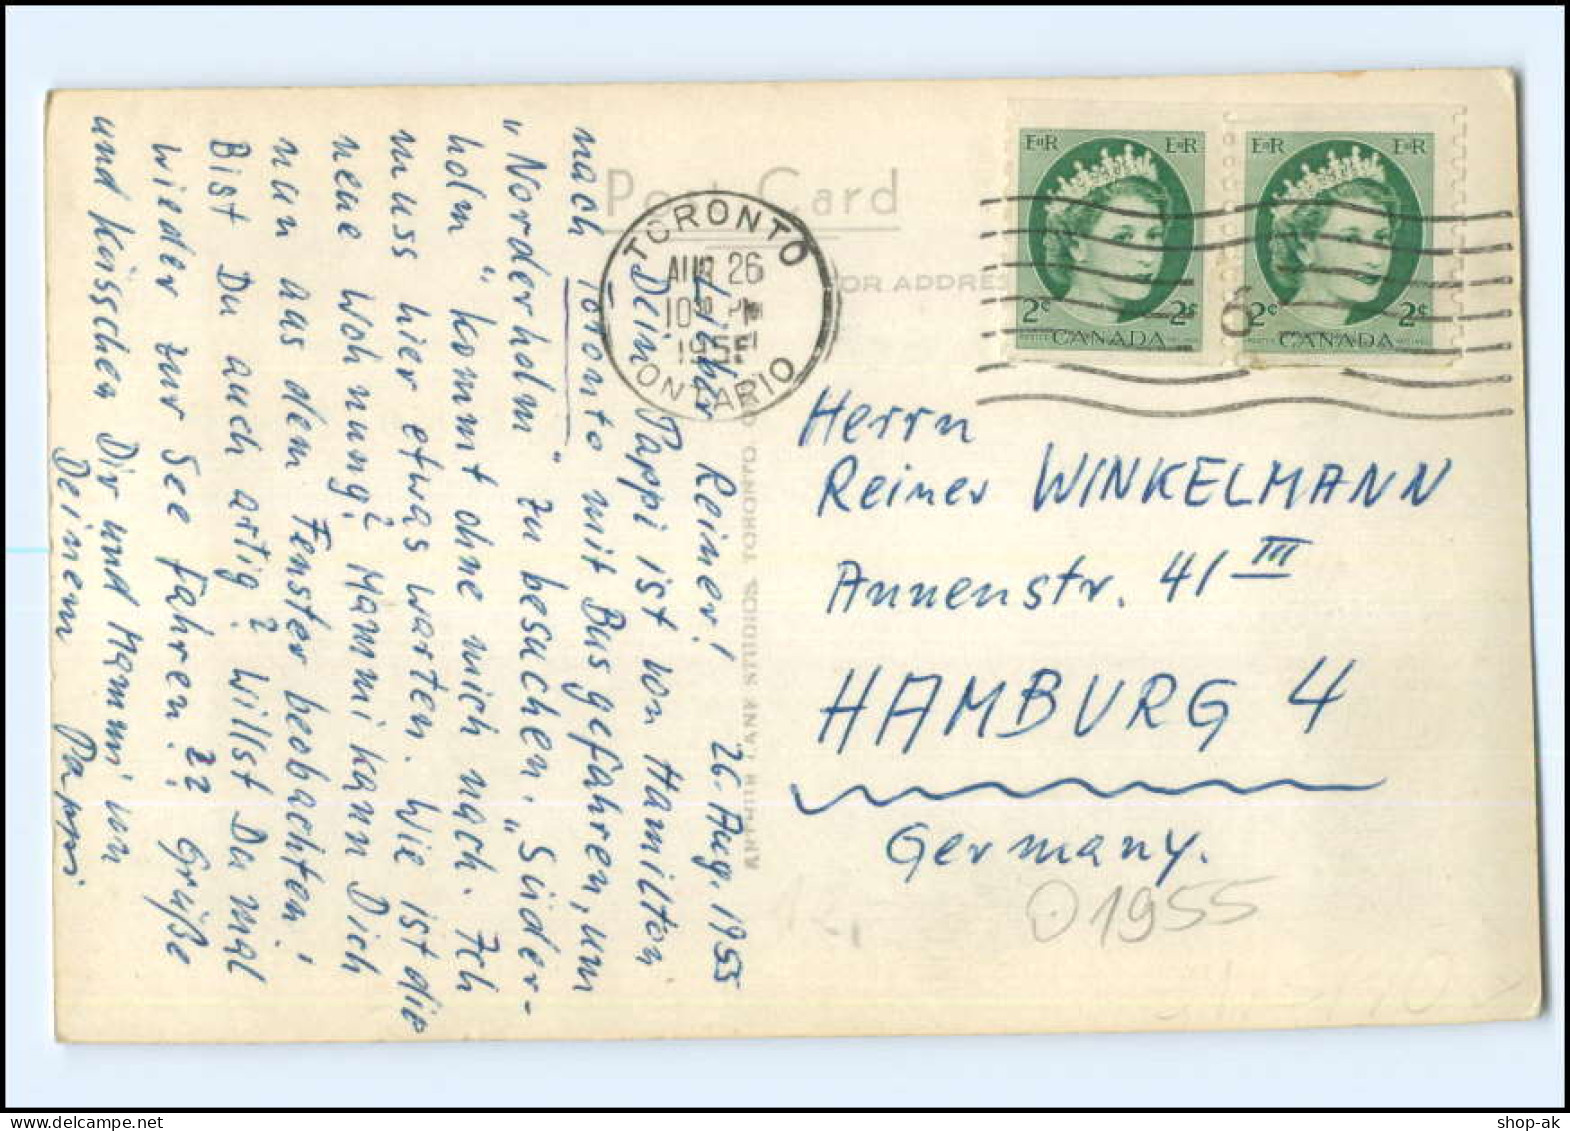 Post Card
TORONTO
AUG 26
10 30 PM
1955
ONTARIO
E II R
E II R
2¢
2¢
CANADA
E II R
E II R
2¢
2¢
CANADA
6
26. Aug. 1955
Lieber Reiner!
Dein Pappi ist von Hamilton
nach Toronto mit Bus gefahren, um
„Norderholm" zu besuchen. „Süder-
holm" kommt ohne mich nach. Ich
muss hier etwas warten. Wie ist die
neue Wohnung? Mammi kann Dich
nun aus dem Fenster beobachten!
Bist Du auch artig? Willst Du mal
wieder zur See fahren??? Grüße
und Küsschen Dir und Mammi von
Deinem Pappi
STUDIOS TORONTO
FOR ADDRESS
Herrn
Reiner WINKELMANN
Annenstr. 41 III
HAMBURG 4
Germany.
1955
shop-ak